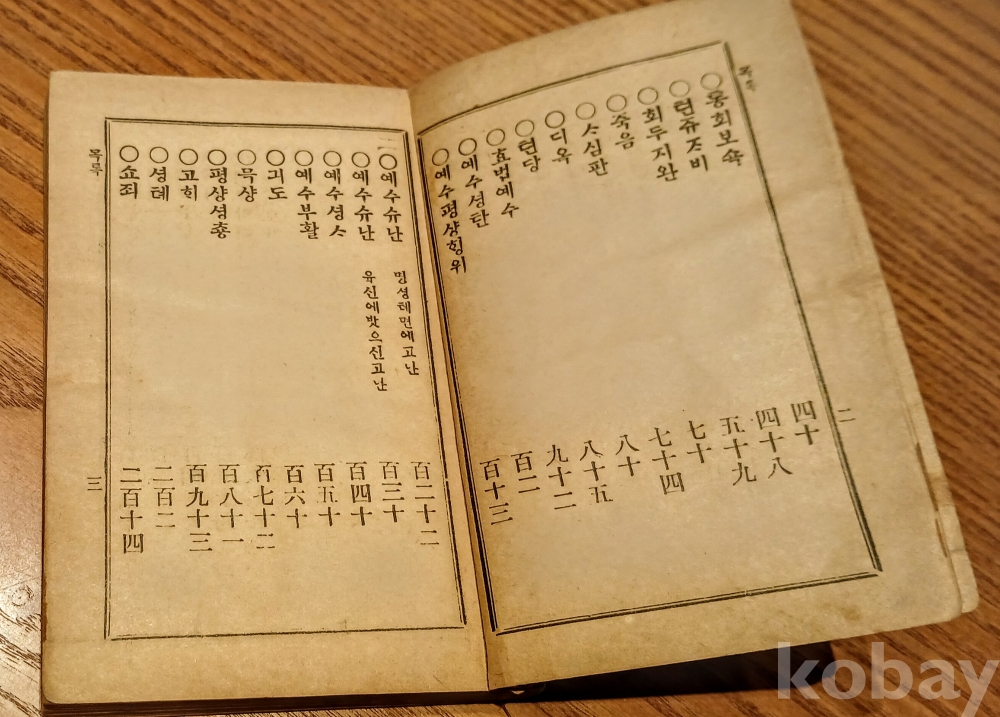 목록
○통회보쇽 四十
○련쥬ᄌᆞ비 四十八
○회두지완 五十九
○죽음 七十
○ᄉᆞ심판 七十四
○디옥 八十
○텬당 八十五
○효법예수 九十二
○예수셩탄 百二
○예수평샹ᄒᆡᆼ위 百十三
二
○예수슈난 명셩톄면에고난 百二十二
○예수슈난 육신에밧으신고난 百三十
○예수셩ᄉᆞ 百四十
○예수부활 百五十
○긔도 百六十
○믁샹 百七十二
○평샹셩춍 百八十一
○고ᄒᆡ 百九十三
○셩톄 二百二
○쇼죄 二百十四
목록
三
kobay